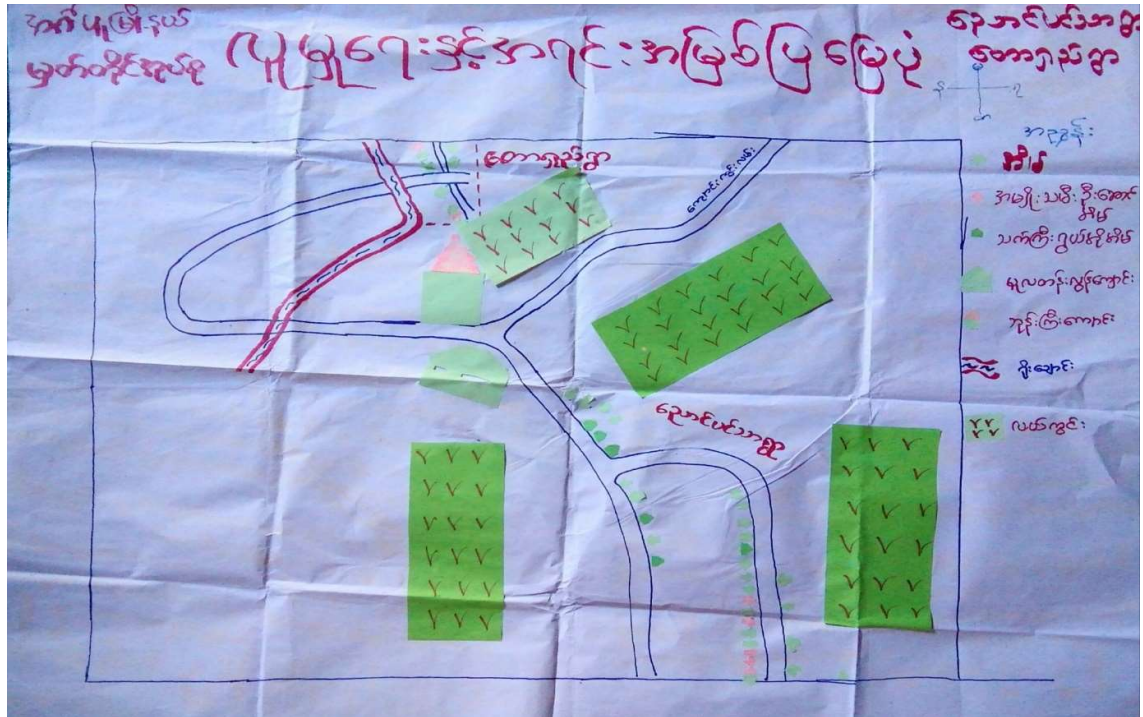 အင်္ဂပူမြို့နယ်
မှတ်တိုင်အုပ်စု
လူမှုရေးနှင့်အရင်းအမြစ်ပြမြေပုံ
ညောင်ပင်သာရွာ
တောရှည်ရွာ
အညွှန်း
အိမ်
အမျိုးသမီးဦးဆောင်
အိမ်
သက်ကြီးရွယ်အိုအိမ်
မူလတန်းလွန်ကျောင်း
ဘုန်းကြီးကျောင်း
ရိုးချောင်း
လယ်ကွင်း
တောရှည်ရွာ
ကျောက်ခင်းလမ်း
ညောင်ပင်သာရွာ